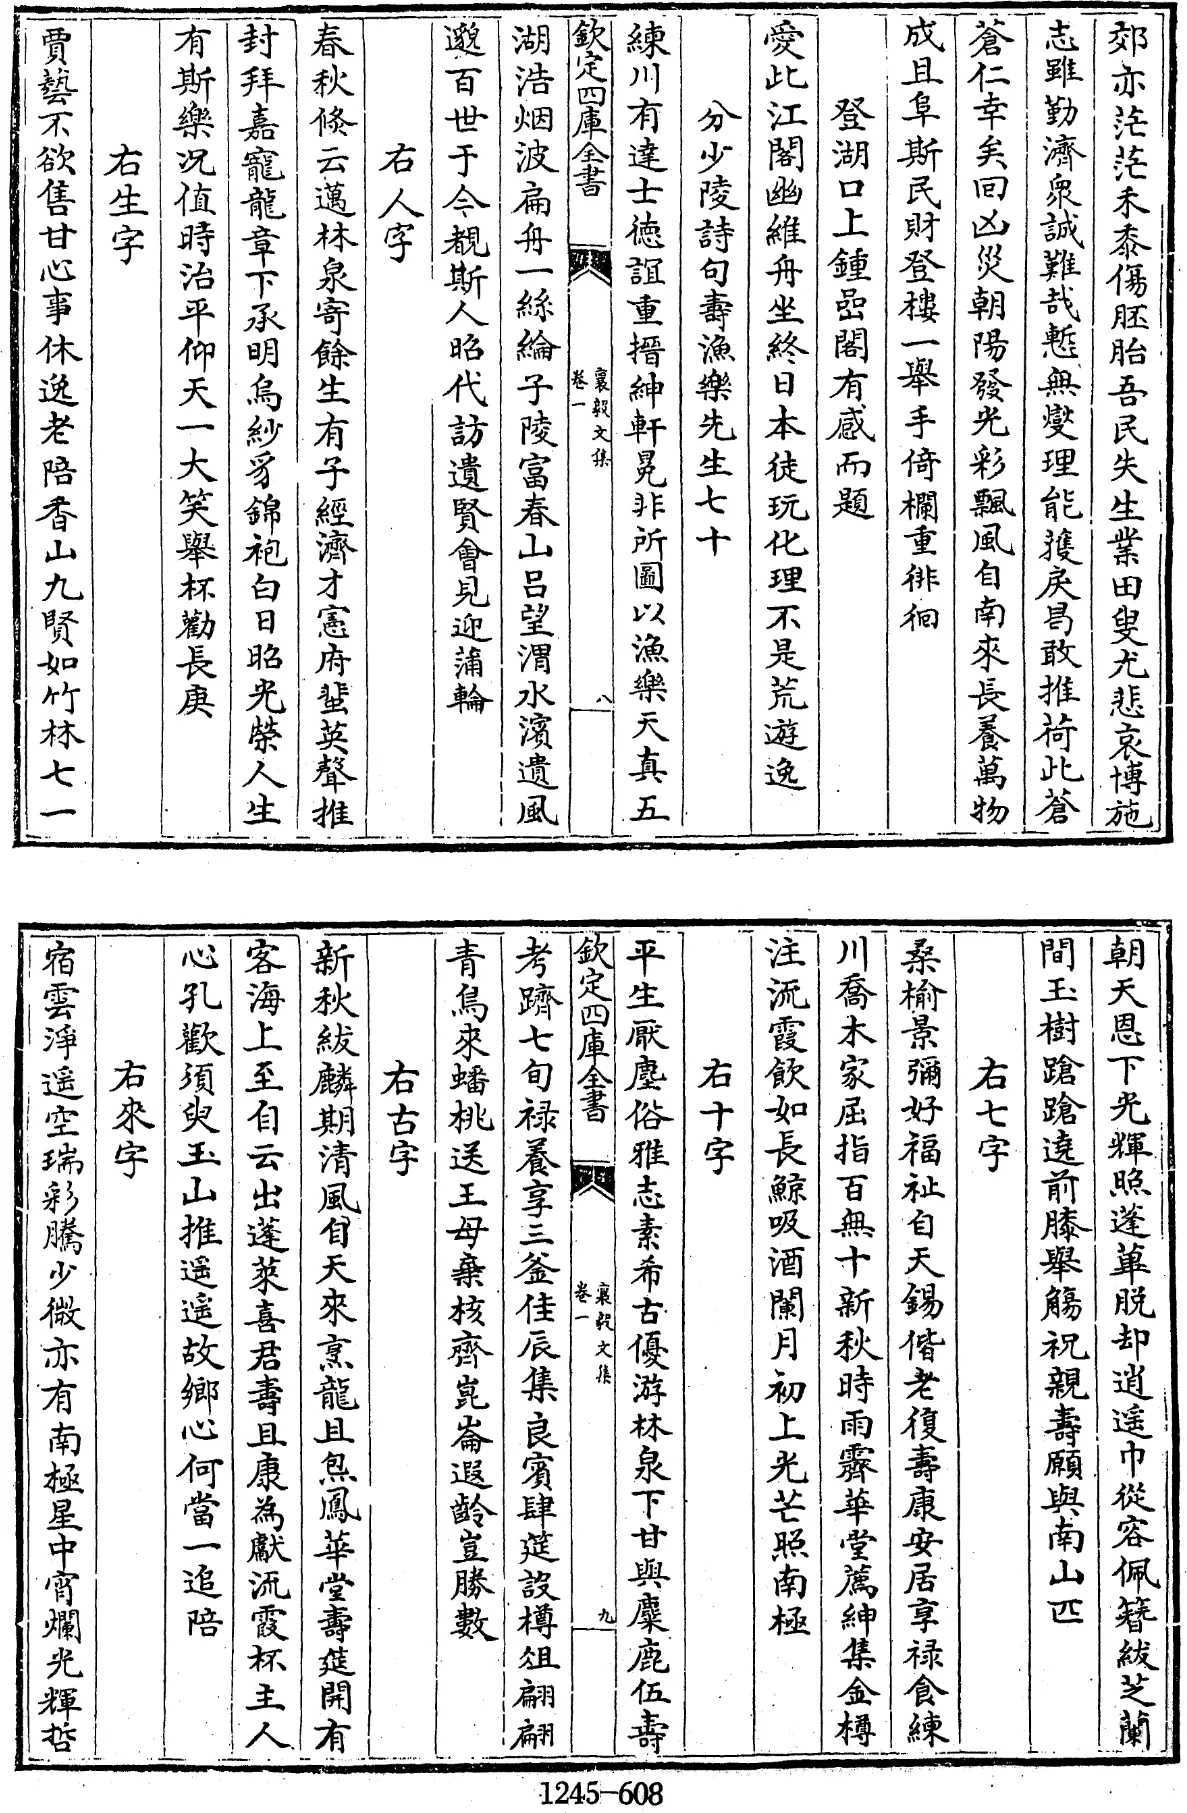 郊亦茫茫禾黍傷胚胎吾民失生業田叟尤悲哀博施
志雖勤濟衆誠難哉慙無燮理能獲戾曷敢推荷此蒼
蒼仁幸矣回凶災朝陽發光彩飄風自南來長養萬物
成且阜斯民財登樓一舉手倚欄重徘徊
登湖口上鍾嵒閣有感而題
愛此江閣幽維舟坐終日本徒玩化理不是荒遊逸
分少陵詩句壽漁樂先生七十
練川有達士徳誼重搢紳軒冕非所圖以漁樂天真五
欽定四庫全書
襄毅文集
卷一
八
湖浩烟波扁舟一絲綸子陵富春山吕望渭水濱遺風
邈百世于今覩斯人昭代訪遺賢會見迎蒲輪
右人字
春秋倐云邁林泉寄餘生有子經濟才憲府蜚英聲推
封拜嘉寵龍章下承明烏紗豸錦袍白日昭光榮人生
有斯樂況值時治平仰天一大笑舉杯勸長庚
右生字
賈藝不欲售甘心事休逸老陪香山九賢如竹林七一
朝天恩下光輝照蓬蓽脱却逍遥巾從容佩簪紱芝蘭
間玉樹蹌蹌遶前膝舉觴祝親壽願與南山匹
右七字
桑榆景彌好福祉自天錫偕老復壽康安居享禄食練
川喬木家屈指百無十新秋時雨霽華堂薦紳集金樽
注流霞飲如長鯨吸酒闌月初上光芒照南極
右十字
平生厭塵俗雅志素希古優游林泉下甘與麋鹿伍壽
欽定四庫全書
襄毅文集
卷一
九
考躋七旬禄養享三釜佳辰集良賓肆筵設樽俎翩翩
青鳥來蟠桃送王母棄核齊崑崙遐齡豈勝數
右古字
新秋紱麟期清風自天來烹龍且炰鳳華堂壽筵開有
客海上至自云出蓬萊喜君壽且康為獻流霞杯主人
心孔歡須臾玉山推遥遥故鄉心何當一追陪
右來字
宿雲淨遥空瑞彩騰少微亦有南極星中宵爛光輝哲
1245-608